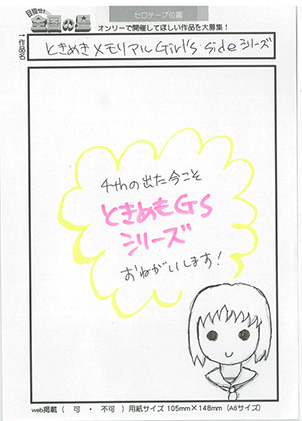 目指せ!
セロテープ位置
オンリーで開催してほしい作品を大募集!
↑作品名
ときめきメモリアルGirl's sideシリーズ
4thの出た今こそ
ときめもGS
シリーズ
おねがいします!
web掲載 ( 可 ・ 不可 ) 用紙サイズ 105mm×148mm (A6サイズ)